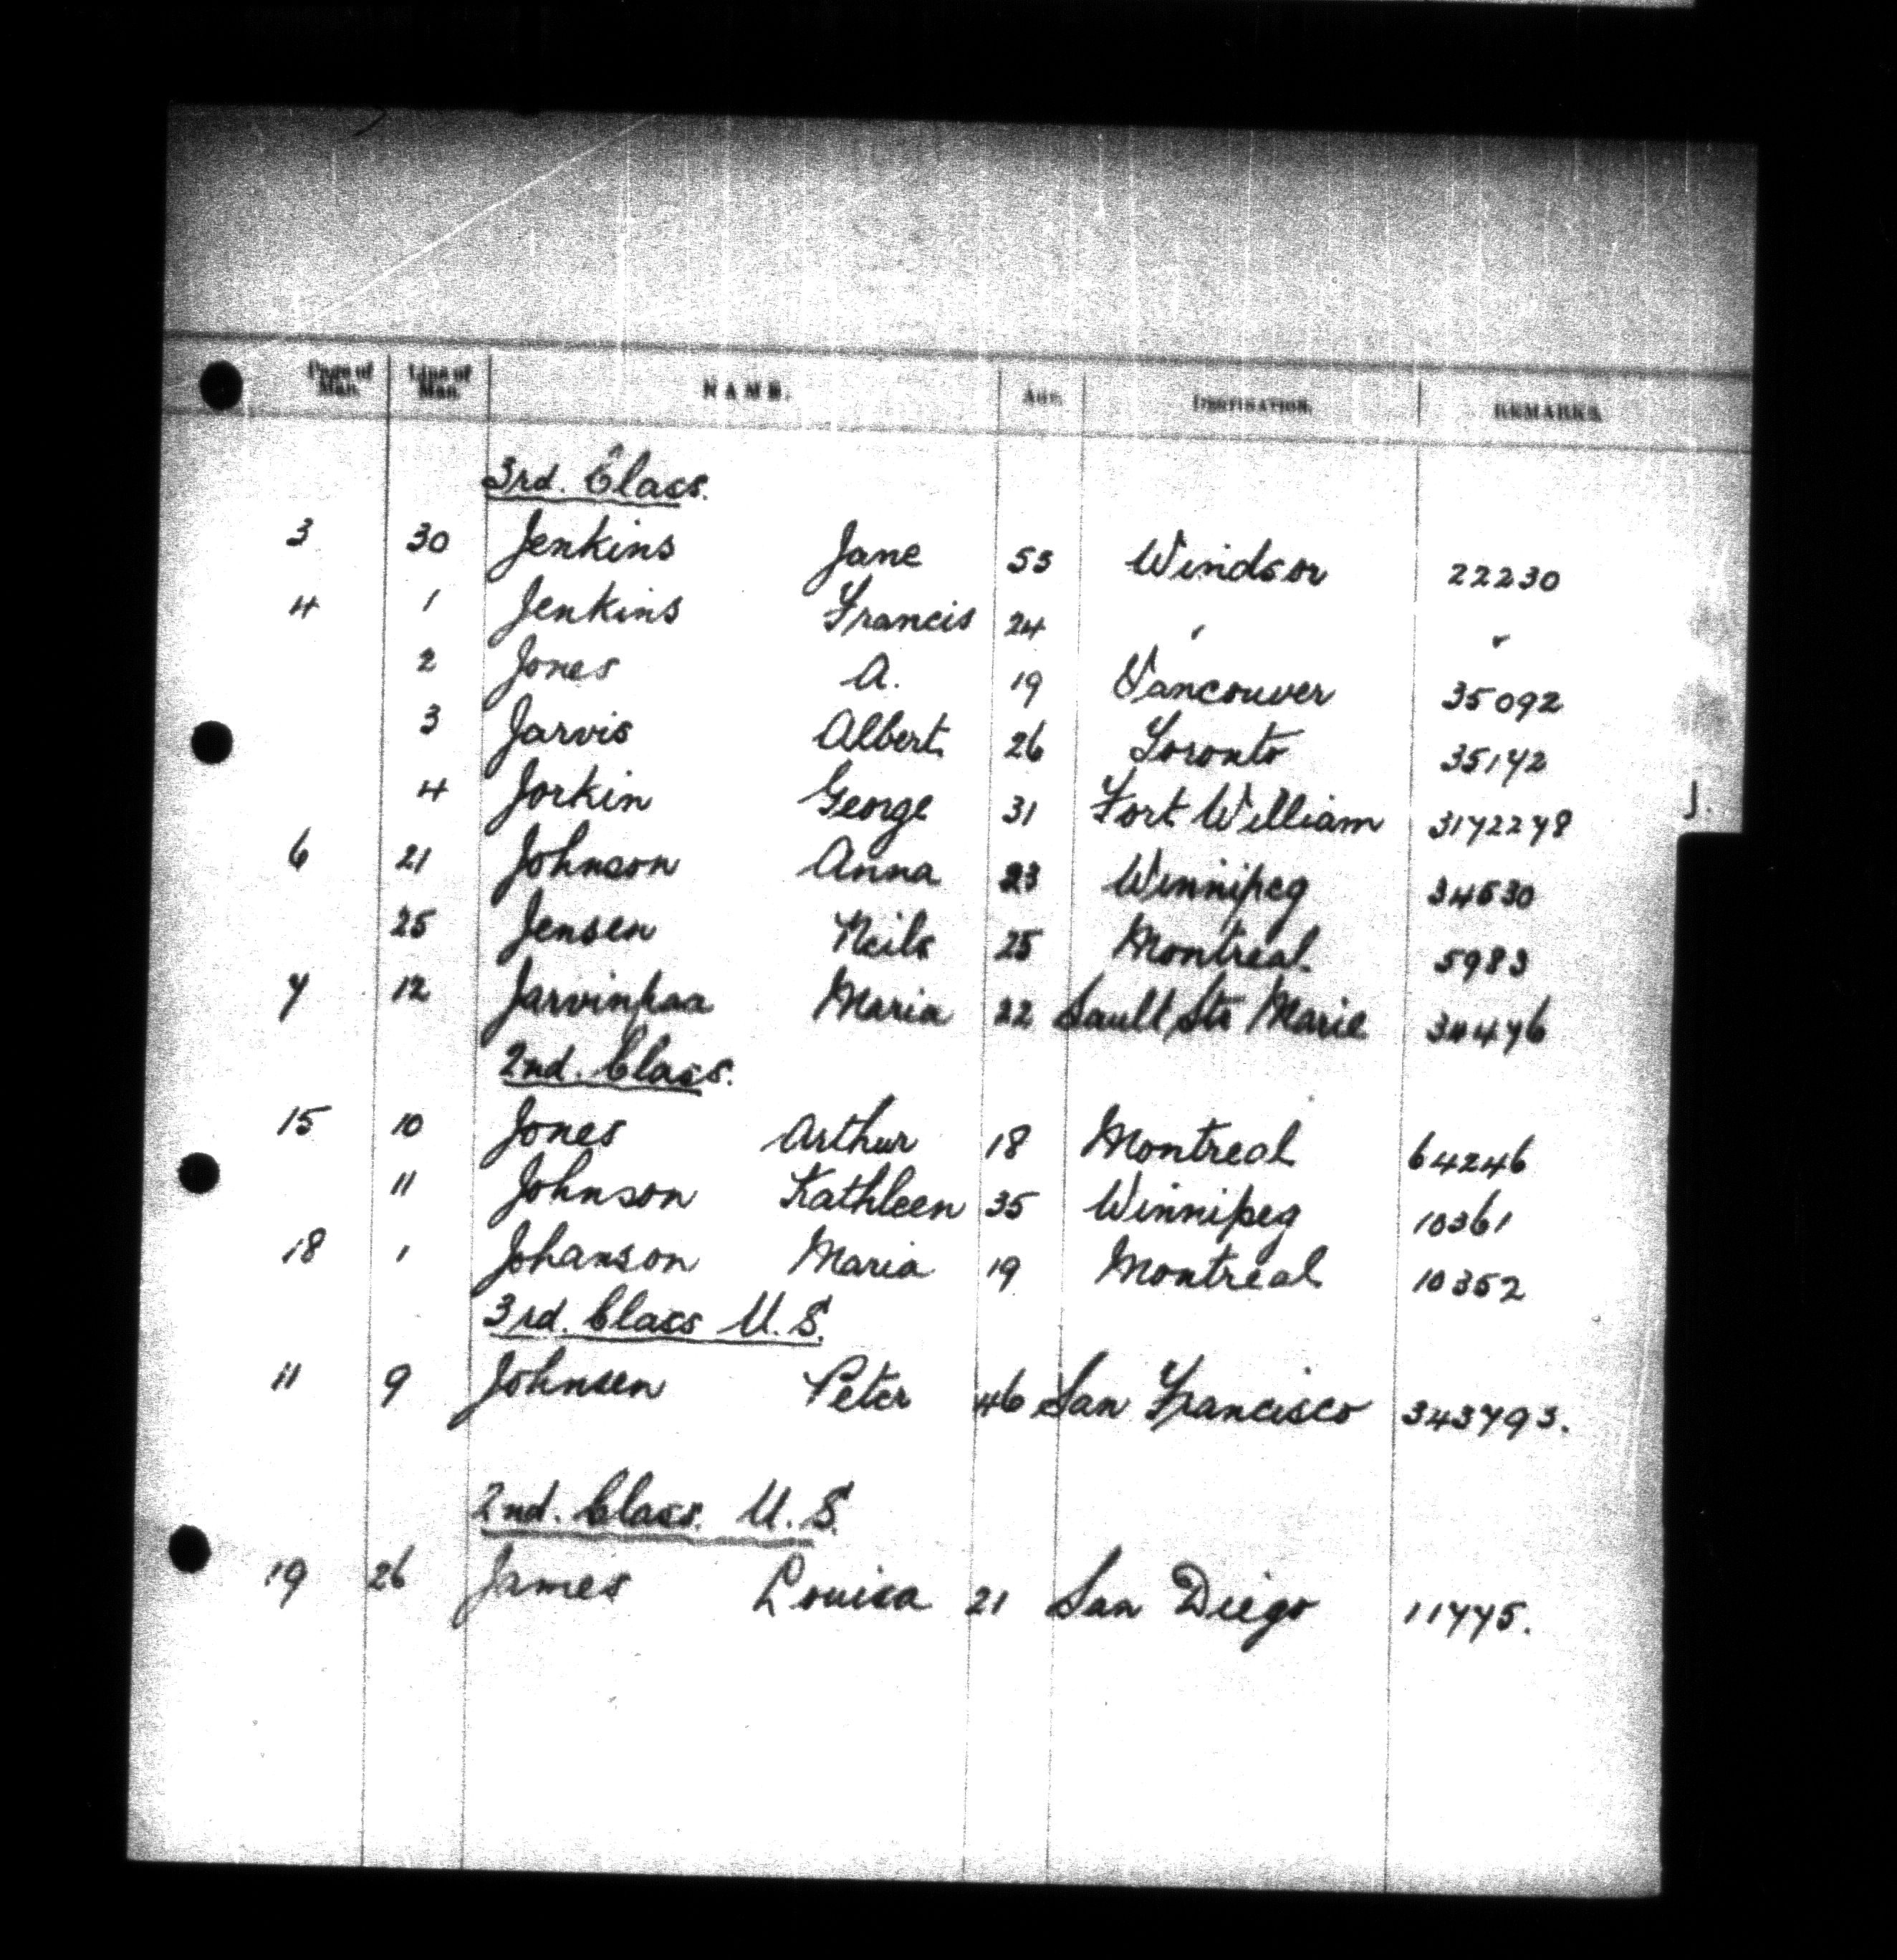 Page of Man. Line of Man. NAME. Age. DESTINATION. REMARKS.
3rd. Class.
3 30 Jenkins Jane 53 Windsor 22230
4 1 Jenkins Francis 24 " "
2 Jones A. 19 Vancouver 35092
3 Jarvis Albert 26 Toronto 35142
4 Jorkin George 31 Fort William 3172278
J.
6 21 Johnson Anna 23 Winnipeg 34630
25 Jensen Neils 25 Montreal 5983
7 12 Jarvinpaa Maria 22 Sault Ste Marie 30476
2nd. Class.
15 10 Jones Arthur 18 Montreal 64246
11 Johnson Kathleen 35 Winnipeg 10361
18 1 Johanson Maria 19 Montreal 10352
3rd. Class U.S.
11 9 Johnsen Peter 46 San Francisco 343793.
2nd. Class. U.S.
19 26 James Louisa 21 San Diego 11775.